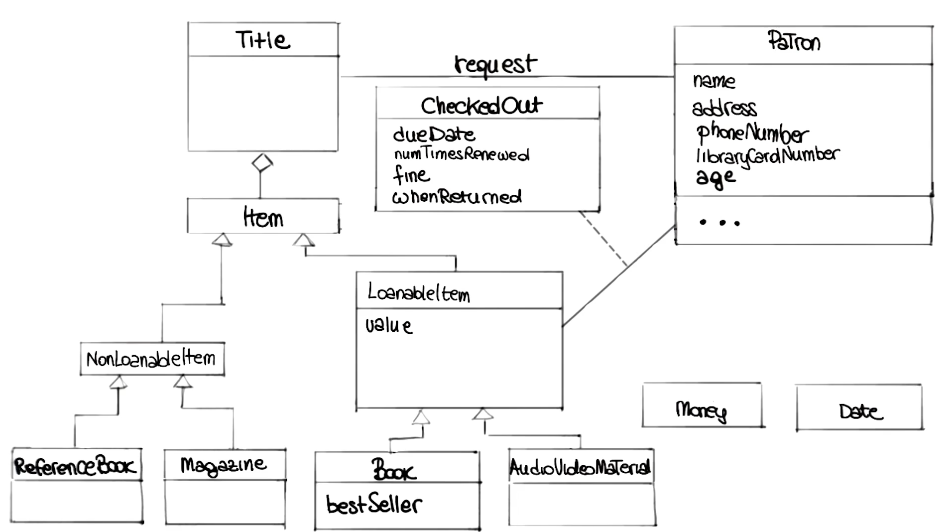 Title
request
Patron
name
address
phoneNumber
libraryCardNumber
age
...
CheckedOut
dueDate
numTimesRenewed
fine
whenReturned
Item
LoanableItem
value
NonLoanableItem
Money
Date
ReferenceBook
Magazine
Book
bestSeller
AudioVideoMaterial